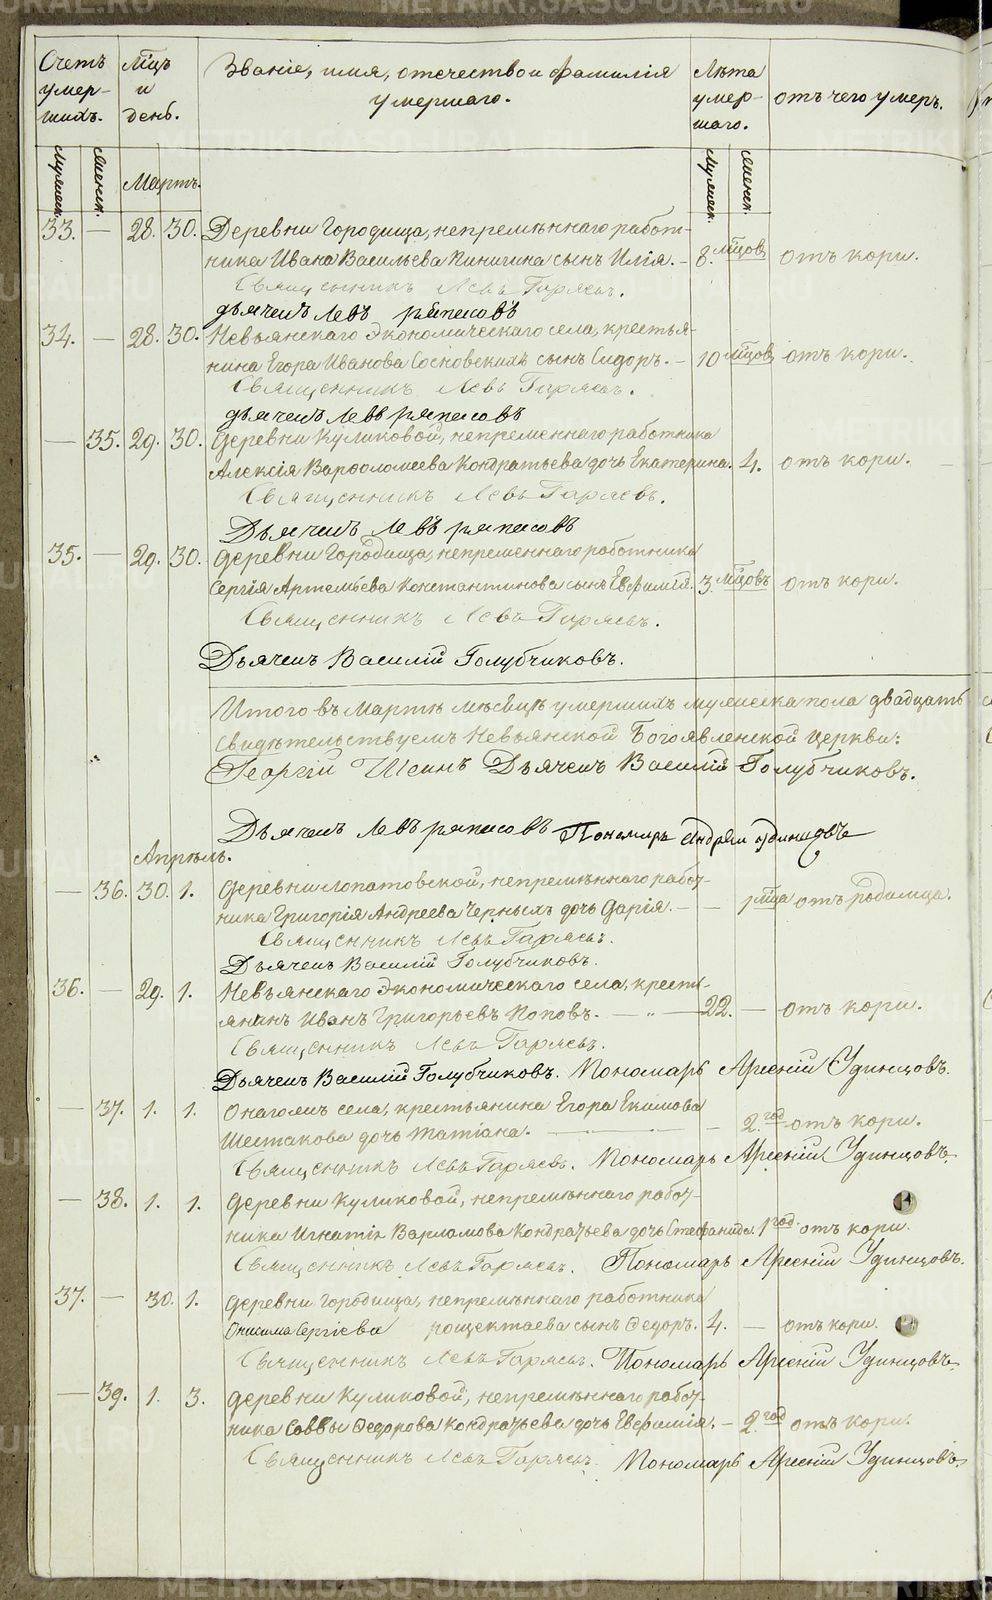 Счетъ умер-шихъ.
Мцъ и день.
Званіе, имя, отечество и фамилія умершаго.
Лѣта умер-шаго.
отъ чего умеръ.
Мужеск. Женск. Мартъ. Мужеск. Женск.
33. — 28. 30. Деревни Городища, непремѣннаго работ-
ника Ивана Васильева Пинигина сынъ Илія. — 8 мцовъ отъ кори.
Священникъ Левъ Гаряевъ.
дьячекъ Левъ ряпасовъ
34. — 28. 30. Невьянскаго Экономическаго села, крестья-
нина Егора Иванова Сосновскихъ сынъ Сидоръ. — 10 мцовъ отъ кори.
Священникъ Левъ Гаряевъ.
дьячекъ Левъ ряпасовъ
— 35. 29. 30. Деревни Куликовой, непременнаго работника
Алексія Варѳоломеева Кондратьева дочь Екатерина. 4. отъ кори.
Священникъ Левъ Гаряевъ.
Дьячекъ Левъ ряпасовъ
35. — 29. 30. Деревни Городища, непременнаго работника
Сергія Артемьева Константинова сынъ Евфимій. 3. мцовъ отъ кори.
Священникъ Левъ Гаряевъ.
Дьячекъ Василій Голубчиковъ.
Итого въ Мартѣ месецѣ умершихъ мужеска пола двадцать
свидѣтельствуемъ Невьянской Богоявленской церкви:
Георгій Шеинъ Дьячекъ Василій Голубчиковъ.
Дьячекъ Левъ ряпасовъ Пономарь Андрей Удинцовъ
Апрѣль.
— 36. 30. 1. Деревни Лопатовской, непремѣннаго работ-
ника Григорія Андреева Черныхъ дочь Дарія. — — 1 мца отъ родимца.
Священникъ Левъ Гаряевъ.
Дьячекъ Василій Голубчиковъ.
36. — 29. 1. Невьянскаго Экономическаго села, кресть-
янинъ Иванъ Григорьевъ Поповъ. — „ — 22. — отъ кори.
Священникъ Левъ Гаряевъ.
Дьячекъ Василій Голубчиковъ. Пономарь Арсеній Удинцовъ.
— 37. 1. 1. Онагожъ села, крестьянина Егора Екимова
Шестакова дочь Татіана. — — 2. год отъ кори.
Священникъ Левъ Гаряевъ. Пономарь Арсеній Удинцовъ.
— 38. 1. 1. Деревни Куликовой, непремѣннаго работ-
ника Игнатія Варламова Кондратьева дочь Стефанида. 1 год. отъ кори.
Священникъ Левъ Гаряевъ. Пономарь Арсеній Удинцовъ.
37. — 30. 1. Деревни Городища, непремѣннаго работника
Онисима Сергіева рощектаева сынъ Ѳедоръ. 4. — отъ кори.
Священникъ Левъ Гаряевъ. Пономарь Арсеній Удинцовъ.
— 39. 1. 3. Деревни Куликовой, непремѣннаго работ-
ника Саввы Ѳедорова Кондратьева дочь Евфимія. — 2. год отъ кори.
Священникъ Левъ Гаряевъ. Пономарь Арсеній Удинцовъ.
METRIKI.GASO-URAL.RU